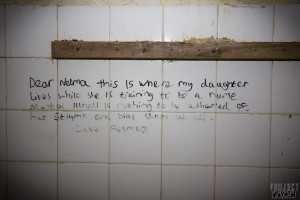 Dear Nelma this is where my daughter
Lives while she is training to be a nurse
Mental illness is nothing to be ashamed of
but Stigma and bias
Love
PROJECT